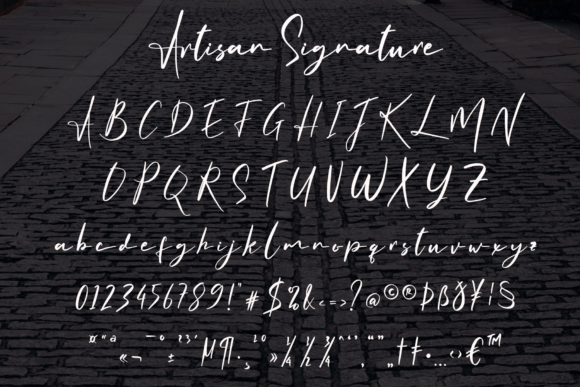 Artisan Signature
ABCDEFGHIJKLMN
OPQRSTUVWXYZ
abcdefghijklmnopqrstuvwxyz
0123456789!"#$%&<=>?@©®Þß¥¡§
¤ ¨ ª ¯ º ² ³ ´ µ ¶ · ¸ ¹ º ¼ ½ ¾ ‘ ’ “ ”
« ¬ ± » ‚ „ † ‡ • … ‹ › € ™